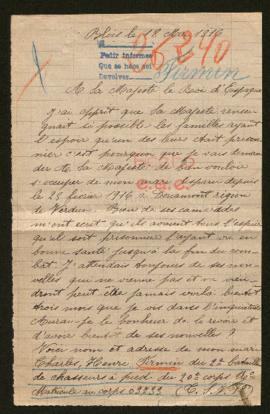 Blois le 18 Mai 1916
Pedir informes
Que se haga así
Devolver
86240
Firmin
A Sa Majesté le Roi d'Espagne
J'ai apprit que Sa Majesté rensei
gnait si possible les familles ayant
l'espoir qu'un des leurs était prison
nier c'est pourquoi que je vais deman
der à Sa Majesté de bien vouloir
s'occuper de mon mari disparu depuis
le 25 février 1916 à Douaumont région
de Verdun. de ses cama
rades m'ont écrit qu'ils avaient tous l'espoir
qu'il soit prisonnier l'ayant vu en
bonne santé jusqu'à la fin du com
bat. J'attendais toujours de ses nou
velles qui ne vienne pas et ne vien
dront peut être jamais voilà bientôt
trois mois que je vis dans l'inquiétude
Aurai-je le bonheur de le revoir et
d'avoir bientôt de ses nouvelles ?
Voici nom et adresse de mon mari
Charles, Henri Firmin du 2e bataillon
de chasseurs à pied du 20e corps
Matricule au corps